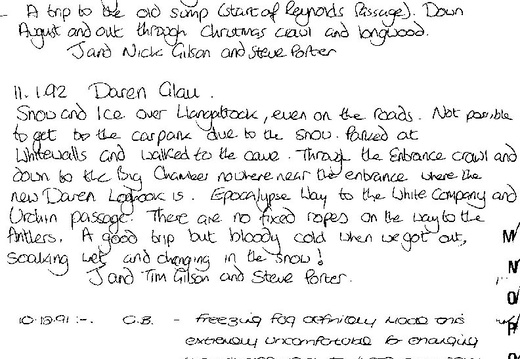 A trip to the old sump (start of Reynolds Passage). Down
August and out through Christmas crawl and longwood.
J and Nick Gilson and Steve Porter
11.1.92 Daren Cilau.
Snow and Ice over Llangattock, even on the roads. Not possible
to get to the carpark due to the snow. Parked at
Whitewalls and walked to the cave. Through the Entrance crawl and
down to the Big Chamber nowhere near the entrance where the
new Daren Logbook is. Epocalypse Way to the White Company and
Urchin passage. There are no fixed ropes on the way to the
Antlers. A good trip but bloody cold when we got out,
soaking wet and changing in the snow!
J and Tim Gilson and Steve Porter.
M/
N
O/
P
10.12.91 :-. O.B. - freezing fog definitely made this
extremely uncomfortable for changing